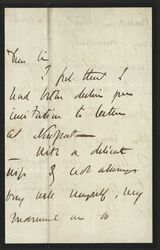 Dear Sir
I feel that I
had better decline your
invitation to lecture
at Newport —
— With a delicate
wife & not always
very well myself, my